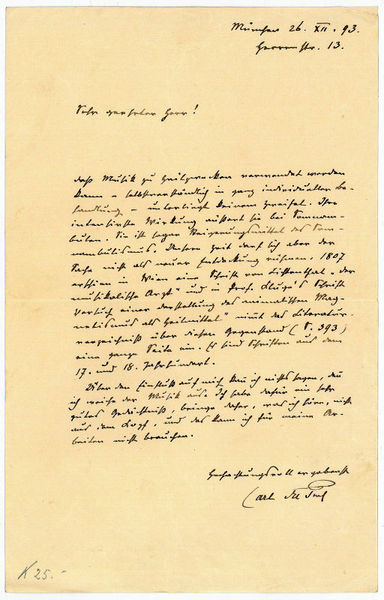 München 26. XII. 93.
Herrenstr. 13.
Sehr geehrter Herr!
Daß Musik zu Heilzwecken verwendet werden
kann – selbstverständlich in ganz individueller Be-
handlung – unterliegt keinem Zweifel. Ihre
intensivste Wirkung äußert sie bei Somnam-
bulen. Sie ist sogar Steigerungsmittel des Som-
nambulismus. Unsere Zeit darf sich aber der
Sache nicht als neuer Entdeckung rühmen. 1807
erschien in Wien eine Schrift von Lichtenthal "der
musikalische Arzt" und in Prof. Kluge's Schrift
"Versuch einer Darstellung des animalischen Mag-
netismus als Heilmittel" nimmt das Literatur-
verzeichniß über diesen Gegenstand (S. 393)
eine ganze Seite ein. Es sind Schriften aus dem
17. und 18. Jahrhundert.
Über den Einfluß auf mich kann ich nichts sagen, denn
ich weiche der Musik aus. Ich habe dafür ein sehr
gutes Gedächtniß, bringe daher, was ich höre, nicht
aus dem Kopf, und das kann ich für meine Ar-
beiten nicht brauchen.
Hochachtungsvoll ergebenst
Carl du Prel
K 25.-